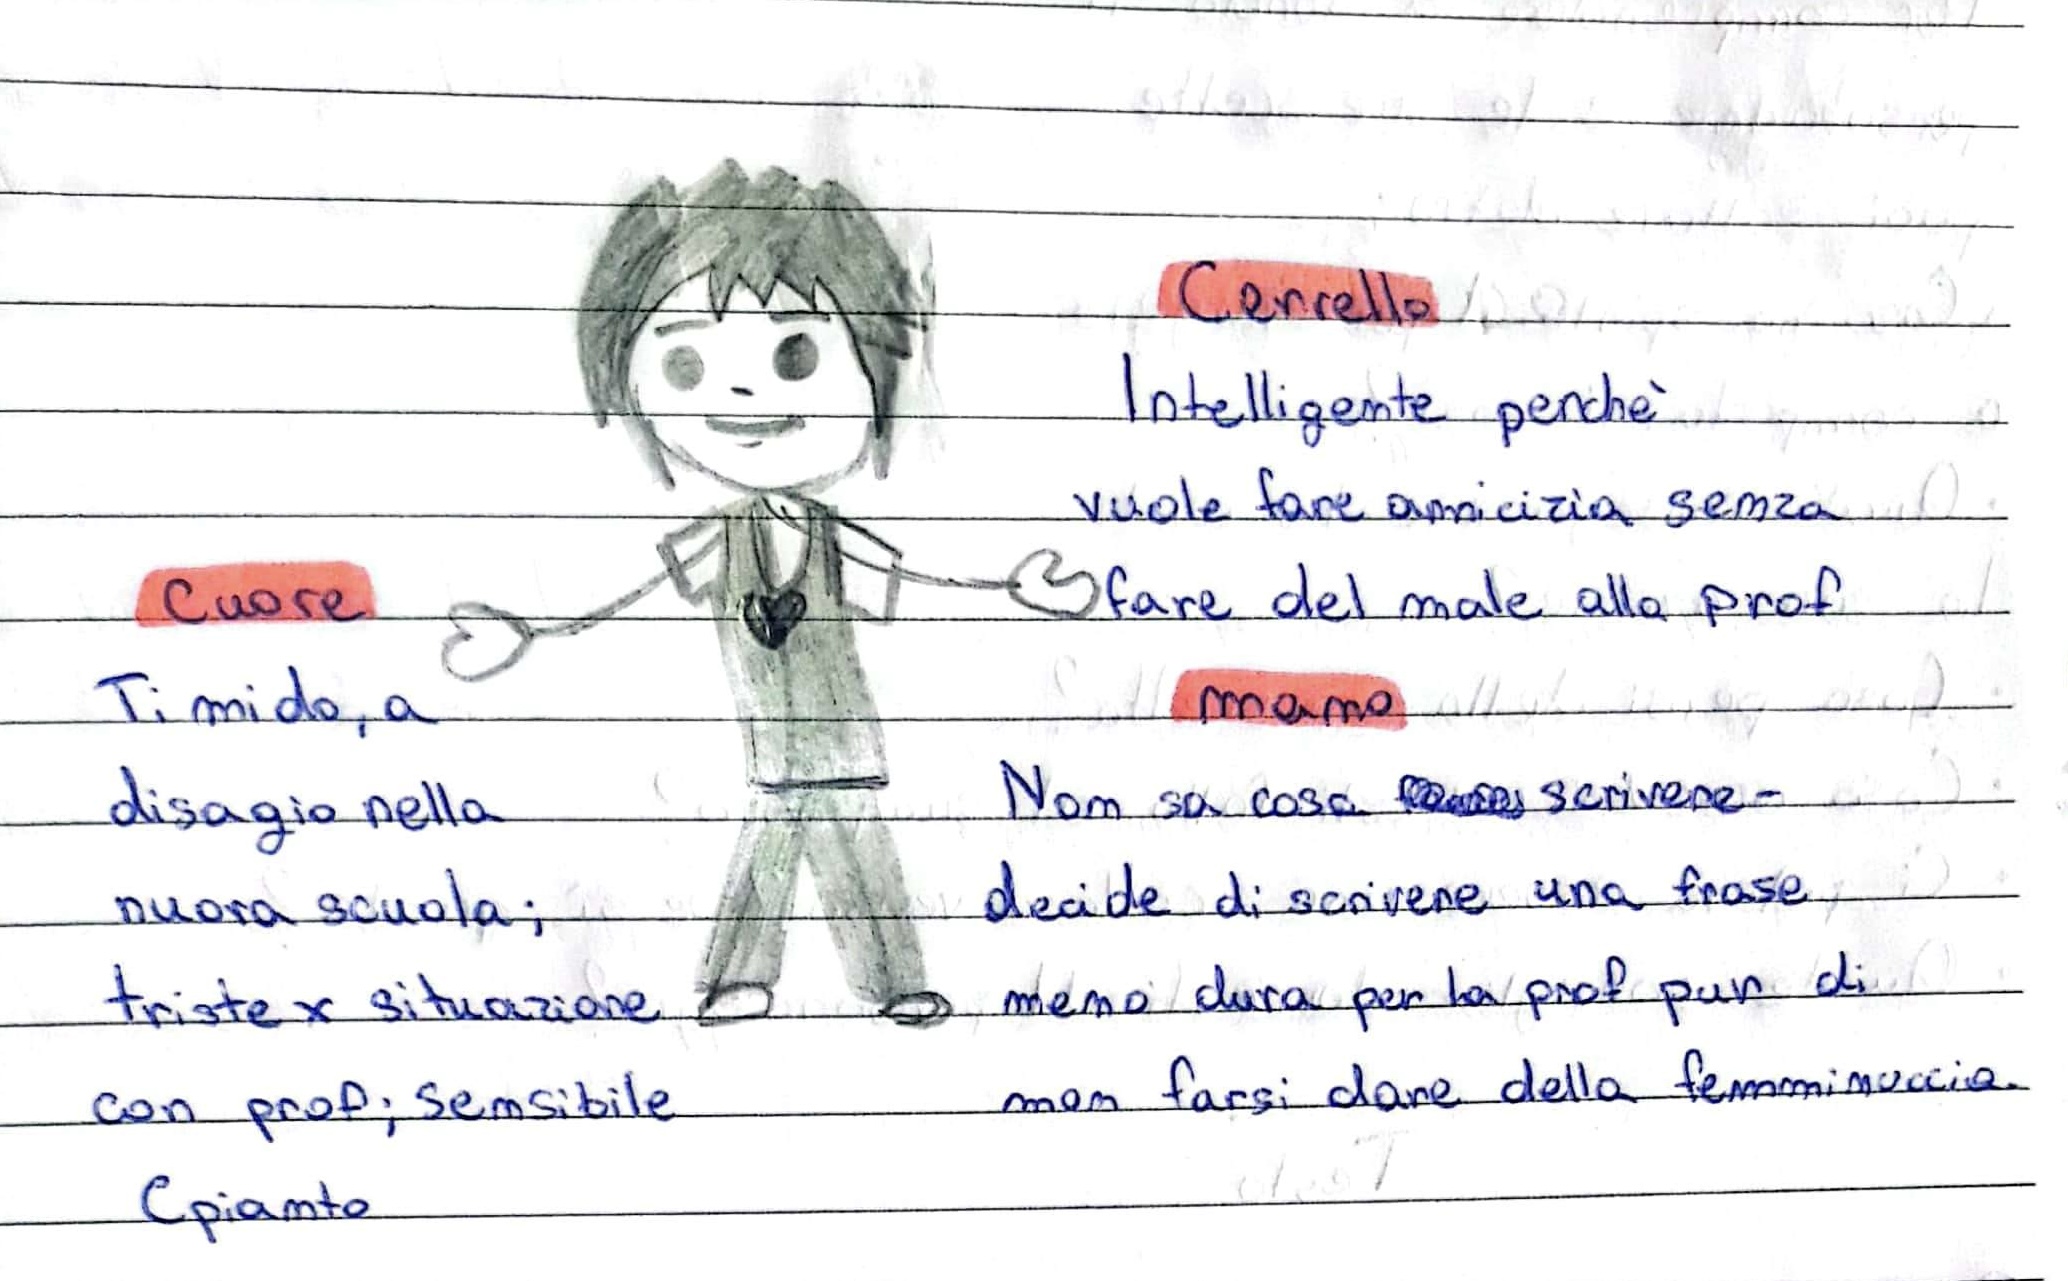 Cuore
Timido, a
disagio nella
nuova scuola;
triste x situazione
con prof; sensibile
(pianto
Cervello
Intelligente perchè
vuole fare amicizia senza
fare del male alla prof
mano
Non sa cosa scrivere-
decide di scrivere una frase
meno dura per la prof pur di
non farsi dare della femminuccia.